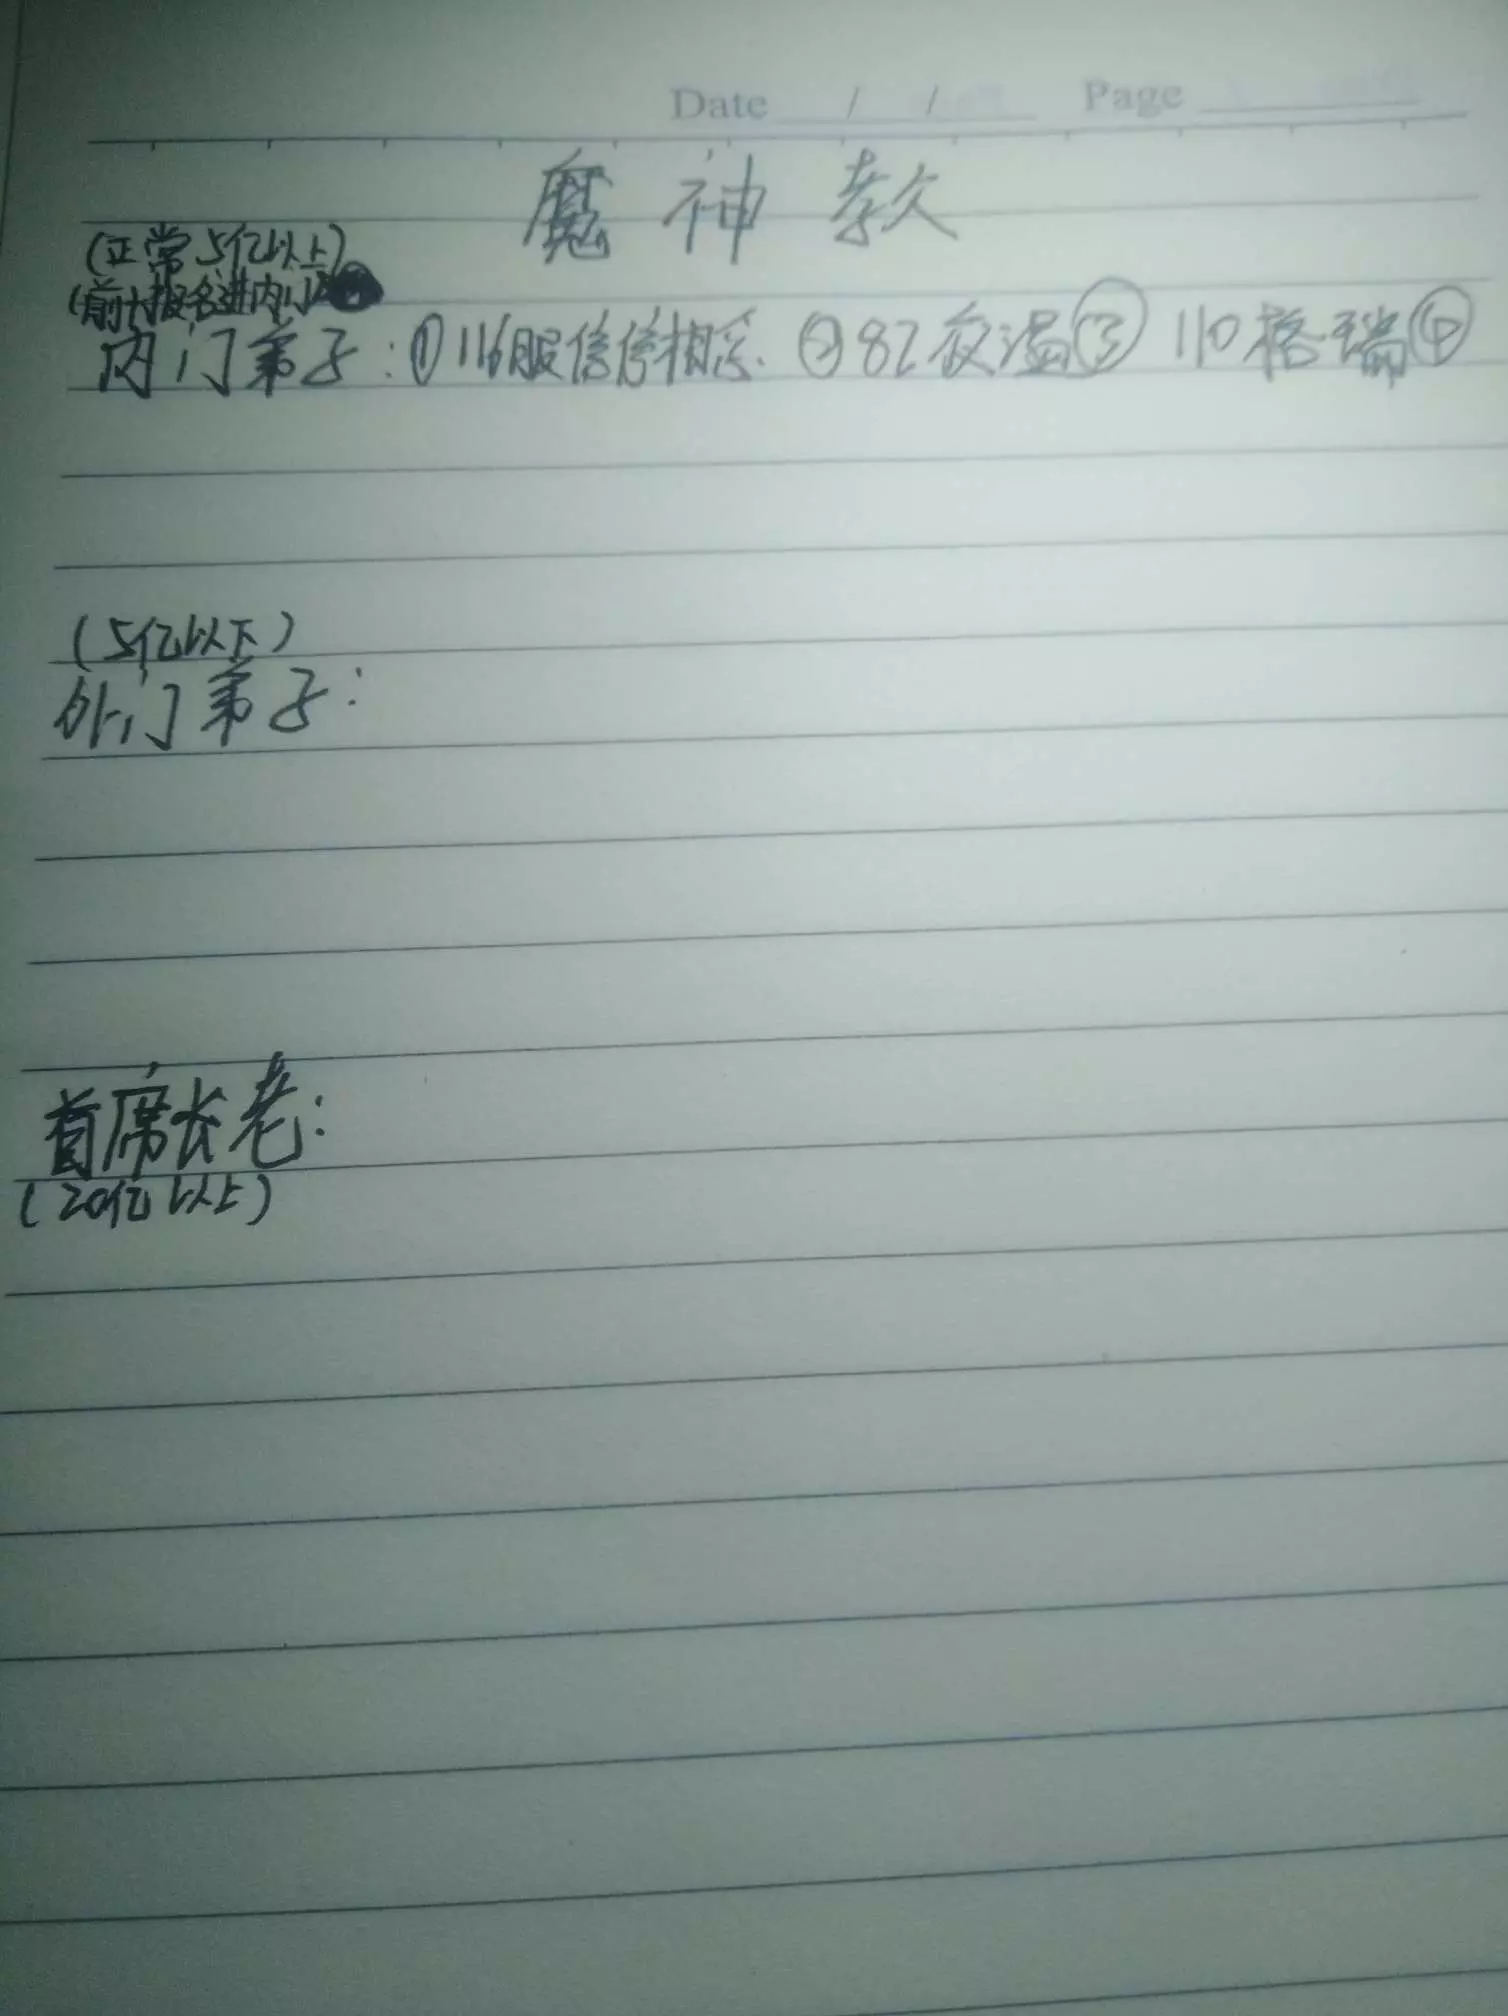 Date / / Page
魔神教
(正常5亿以上)
(前十报名进内门)
内门弟子:①116服信信相 ②82夜温③ 110格瑞④
(5亿以下)
外门弟子:
首席长老:
(20亿以上)